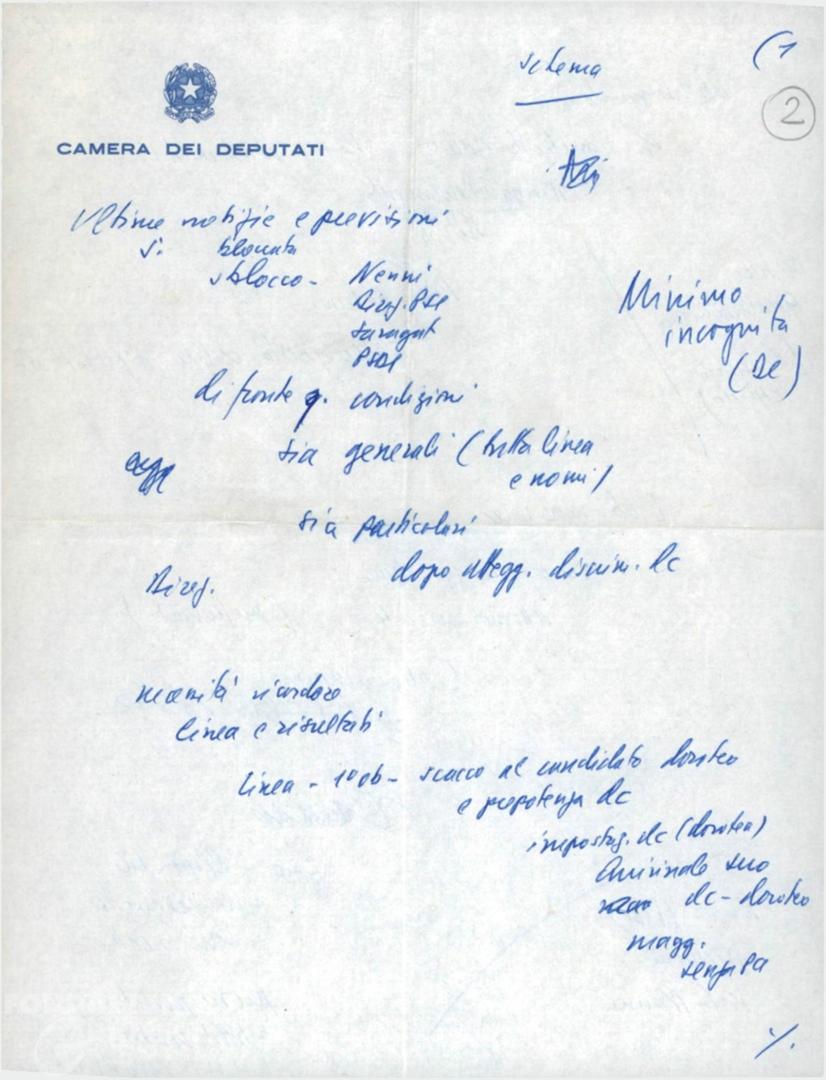 schema
(1
2
CAMERA DEI DEPUTATI
Ultime notizie e previsioni
s. bloccata
sblocco - Nenni
Direz. PSI
Saragat
PSDI
Minimo
incognita
(DC)
di fronte q. condizioni
sia generali (tutta linea
e nomi)
sia particolari
dopo attegg. discrim. DC
Direz.
necessità ricordare
linea e risultati
linea - 1° ob - scacco al candidato doroteo
e prepotenza dc
impostaz. dc (dorotea)
Quirinale suo
dc - doroteo
magg.
senza PCI
./.